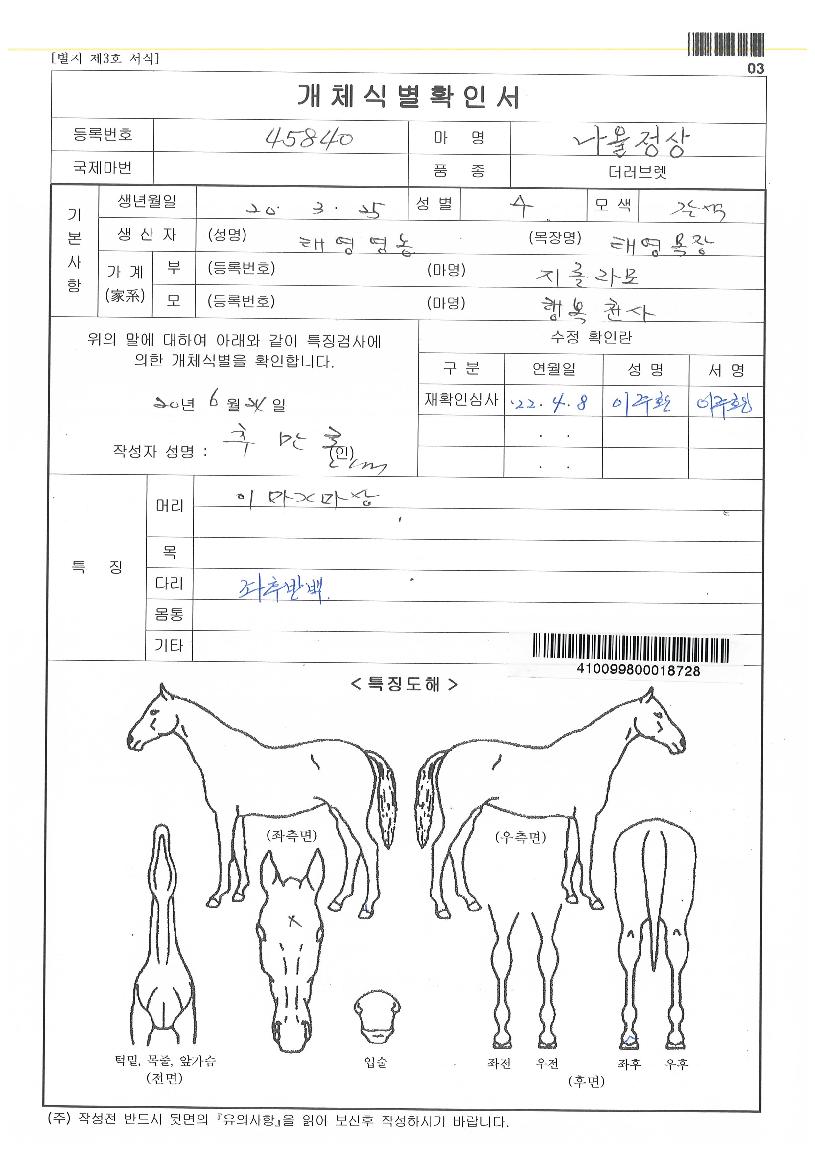 [별지 제3호 서식]
03
개체식별확인서
등록번호 45840 마 명 나올정상
국제마번 품 종 더러브렛
기본사항
생년월일 20. 3. 25 성별 수 모색 갈색
생산자 (성명) 태영영농 (목장명) 태영목장
가계(家系) 부 (등록번호) (마명) 지롤라모
모 (등록번호) (마명) 행복천사
위의 말에 대하여 아래와 같이 특징검사에
의한 개체식별을 확인합니다.
20년 6월 24일
작성자 성명 : 추만호 (인)
수정 확인란
구분 연월일 성명 서명
재확인심사 '22. 4. 8 이주환 이주환
. .
. .
특 징
머리 이마X마상
목
다리 좌후반백.
몸통
기타
410099800018728
<특징도해>
(좌측면) (우측면)
턱밑, 목줄, 앞가슴
(전면)
입술
좌전 우전 좌후 우후
(후면)
(주) 작성전 반드시 뒷면의 『유의사항』을 읽어 보신후 작성하시기 바랍니다.